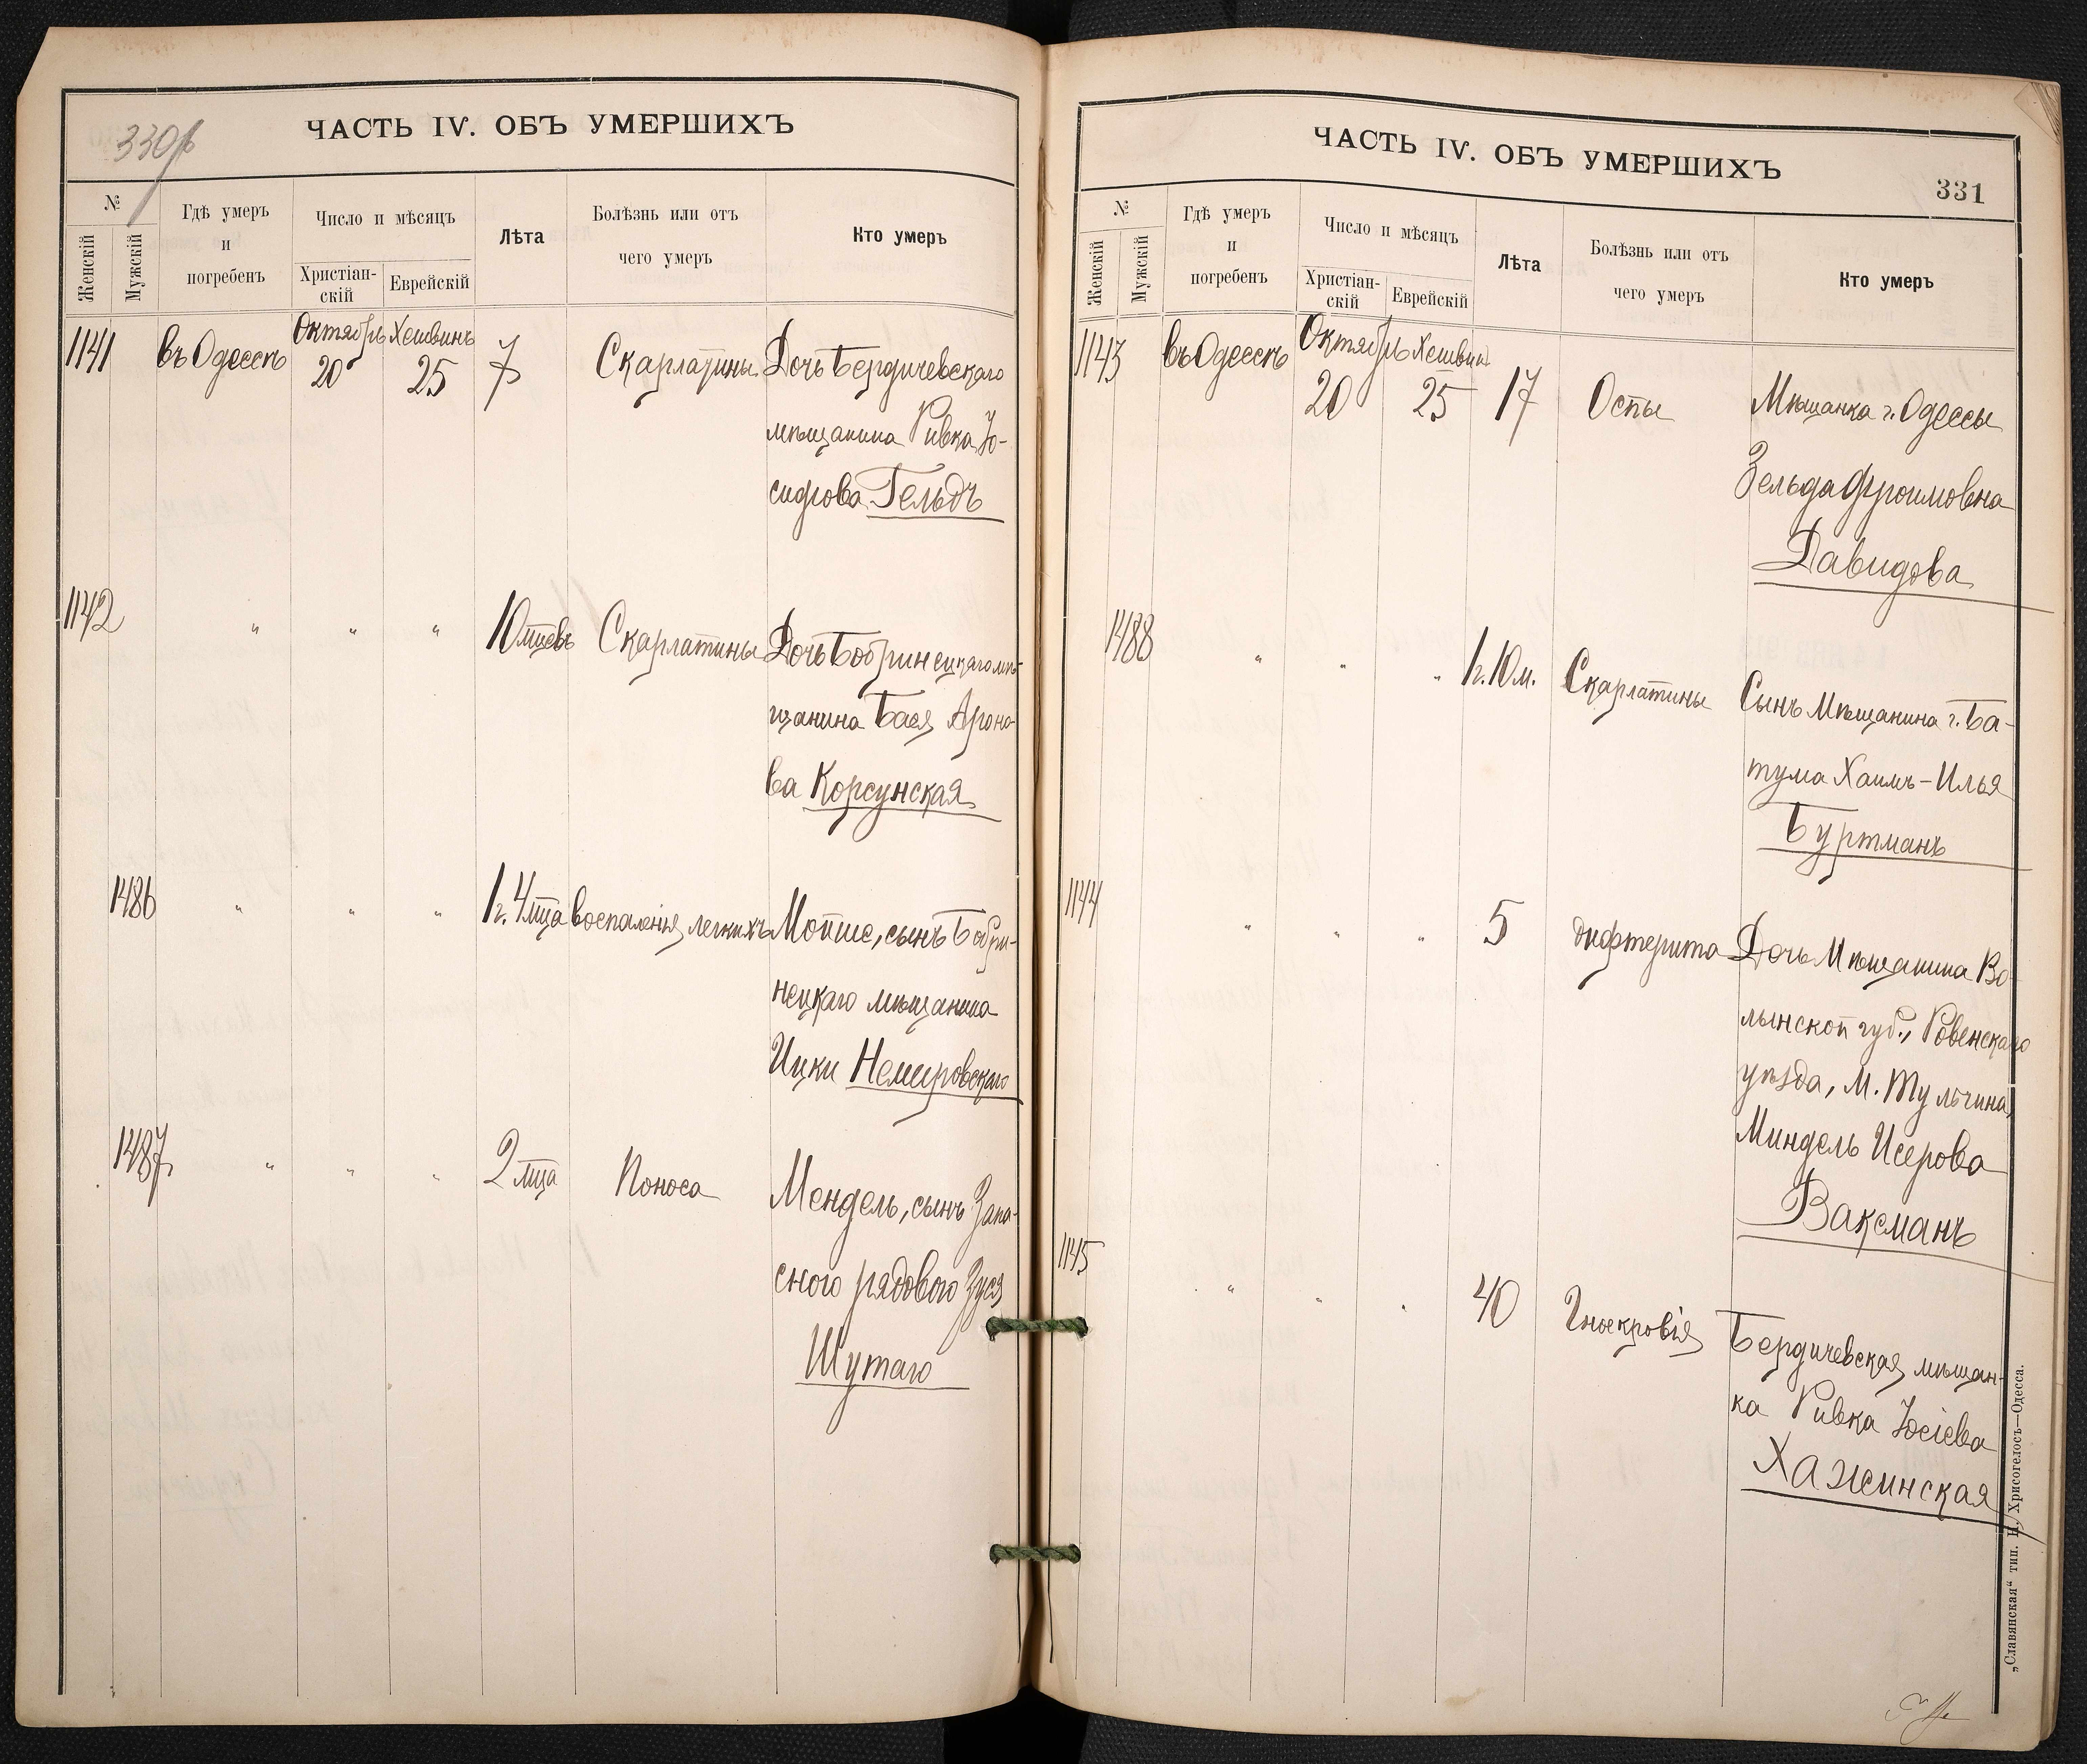 330 об
ЧАСТЬ IV. ОБЪ УМЕРШИХЪ
№
Женскій
Мужскій
Гдѣ умеръ
и
погребенъ
Число и мѣсяцъ
Христіан-
скій
Еврейскій
Лѣта
Болѣзнь или отъ
чего умеръ
Кто умеръ
1141 въ Одессѣ Октябрь 20 Хешвинъ 25 7 Скарлатины Дочь Бердичевскаго
мѣщанина Ривка Іо-
сифова Гельдъ
1142 " " " 10 мцевъ Скарлатины Дочь Бобринецкаго мѣ-
щанина Бася Ароно-
ва Корсунская
1486 " " " 1 г. 4 мца воспаленія легкихъ Мойше, сынъ Бобри-
нецкаго мѣщанина
Ицки Немировскаго
1487 " " " 2 мца Поноса Мендель, сынъ Запа-
сного рядового Зуся
Шутаго
ЧАСТЬ IV. ОБЪ УМЕРШИХЪ
331
№
Женскій
Мужскій
Гдѣ умеръ
и
погребенъ
Число и мѣсяцъ
Христіан-
скій
Еврейскій
Лѣта
Болѣзнь или отъ
чего умеръ
Кто умеръ
1143 въ Одессѣ Октябрь 20 Хешвинъ 25 17 Оспы Мѣщанка г. Одессы
Зельда Фроимовна
Давидова
1488 " " " 1 г. 10 м. Скарлатины Сынъ Мѣщанина г. Ба-
тума Хаимъ-Илья
Буртманъ
1144 " " " 5 дифтерита Дочь Мѣщанина Во-
лынской губ., Ровенскаго
уѣзда, М. Тульчина,
Миндель Исерова
Ваксманъ
1145 " " " 40 Гноекровія Бердичевская мѣщан-
ка Ривка Іосіева
Хажинская
„Славянская“ тип. Н. Хрисогелосъ—Одесса.